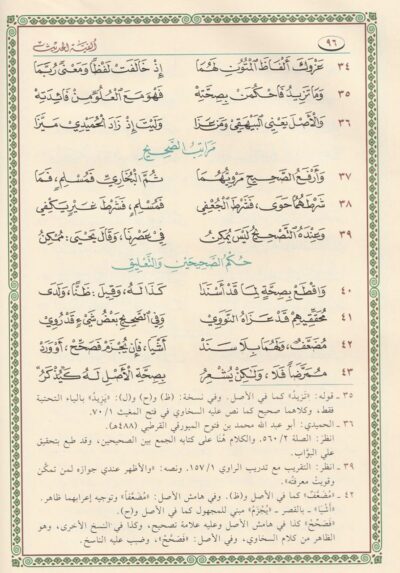 ألفية الحديث
٩٦
٣٤ عَزْوَكَ أَلْفَاظَ الْمُتُونِ لَهُمَا إِذْ خَالَفَتْ لَفْظًا وَمَعْنًى رُبَّمَا
٣٥ وَمَا تَزِيدُ فَاحْكُمَنْ بِصِحَّتِهْ فَهْوَ مَعَ الْعُلُوِّ مِنْ فَائِدَتِهْ
٣٦ وَالْأَصْلَ يَعْنِي الْبَيْهَقِي وَمَنْ عَزَا وَلَيْتَ إِذْ زَادَ الْحُمَيْدِي مَيَّزَا
مَرَاتِبُ الصَّحِيحِ
٣٧ وَأَرْفَعُ الصَّحِيحِ مَرْوِيُّهُمَا ثُمَّ الْبُخَارِيُّ فَمُسْلِمٌ، فَمَا
٣٨ شَرْطَهُمَا حَوَى، فَشَرْطُ الْجُعْفِي فَمُسْلِمٍ، فَشَرْطُ غَيْرٍ يَكْفِي
٣٩ وَعِنْدَهُ التَّصْحِيحُ لَيْسَ يُمْكِنُ فِي عَصْرِنَا، وَقَالَ يَحْيَى: مُمْكِنُ
حُكْمُ الصَّحِيحَيْنِ وَالتَّعْلِيقِ
٤٠ وَاقْطَعْ بِصِحَّةٍ لِمَا قَدْ أَسْنَدَا كَذَا لَهُ، وَقِيلَ: ظَنًّا، وَلَدَى
٤١ مُحَقِّقِيهِمْ قَدْ عَزَاهُ النَّوَوِي وَفِي الصَّحِيحِ بَعْضُ شَيْءٍ قَدْ رُوِيْ
٤٢ مُضَعَّفٌ، وَلَهُمَا بِلَا سَنَدْ أَشْيَا، فَإِنْ يُجْزَمْ فَصَحِّحْ، أَوْ وَرَدْ
٤٣ مُمَرَّضًا فَلَا، وَلَكِنْ يُشْعِرُ بِصِحَّةِ الْأَصْلِ لَهُ كَـ«يُذْكَرُ»
٣٥ - قوله: «تَزِيدُ» كما في الأصل. وفي نسخة: (ظ) و(ح) و(ل): «يَزِيدُ» بالياء التحتية
فقط، وكلاهما صحيح كما نص عليه السخاوي في فتح المغيث ٧٠/١.
٣٦ - الحميدي: أبو عبد الله محمد بن فتوح الميورقي القرطبي (٤٨٨هـ).
انظر: الصلة ٥٦٠/٢. والكلام هُنا على كتابه الجمع بين الصحيحين، وقد طبع بتحقيق
علي البوَّاب.
٣٩ - انظر: التقريب مع تدريب الراوي ١٥٧/١. ونصه: «والأظهر عندي جوازه لمن تمكن
وقويتْ معرفتُه».
٤٢ - «مُضَعَّفٌ» كما في الأصل و(ظ). وفي هامش الأصل: «مُضَعَّفًا» وتوجيه إعرابهما ظاهر.
«أَشْيَا» - بالقصر - «يُجْزَمْ» مبني للمجهول كما في الأصل و(ح).
«فَصَحِّحْ»: كذا في هامش الأصل وعليه علامة تصحيح، وكذا في النسخ الأخرى، وهو
الظاهر من كلام السخاوي، وفي الأصل: «فَصَحِّحُ»، وضبب عليه الناسخ.